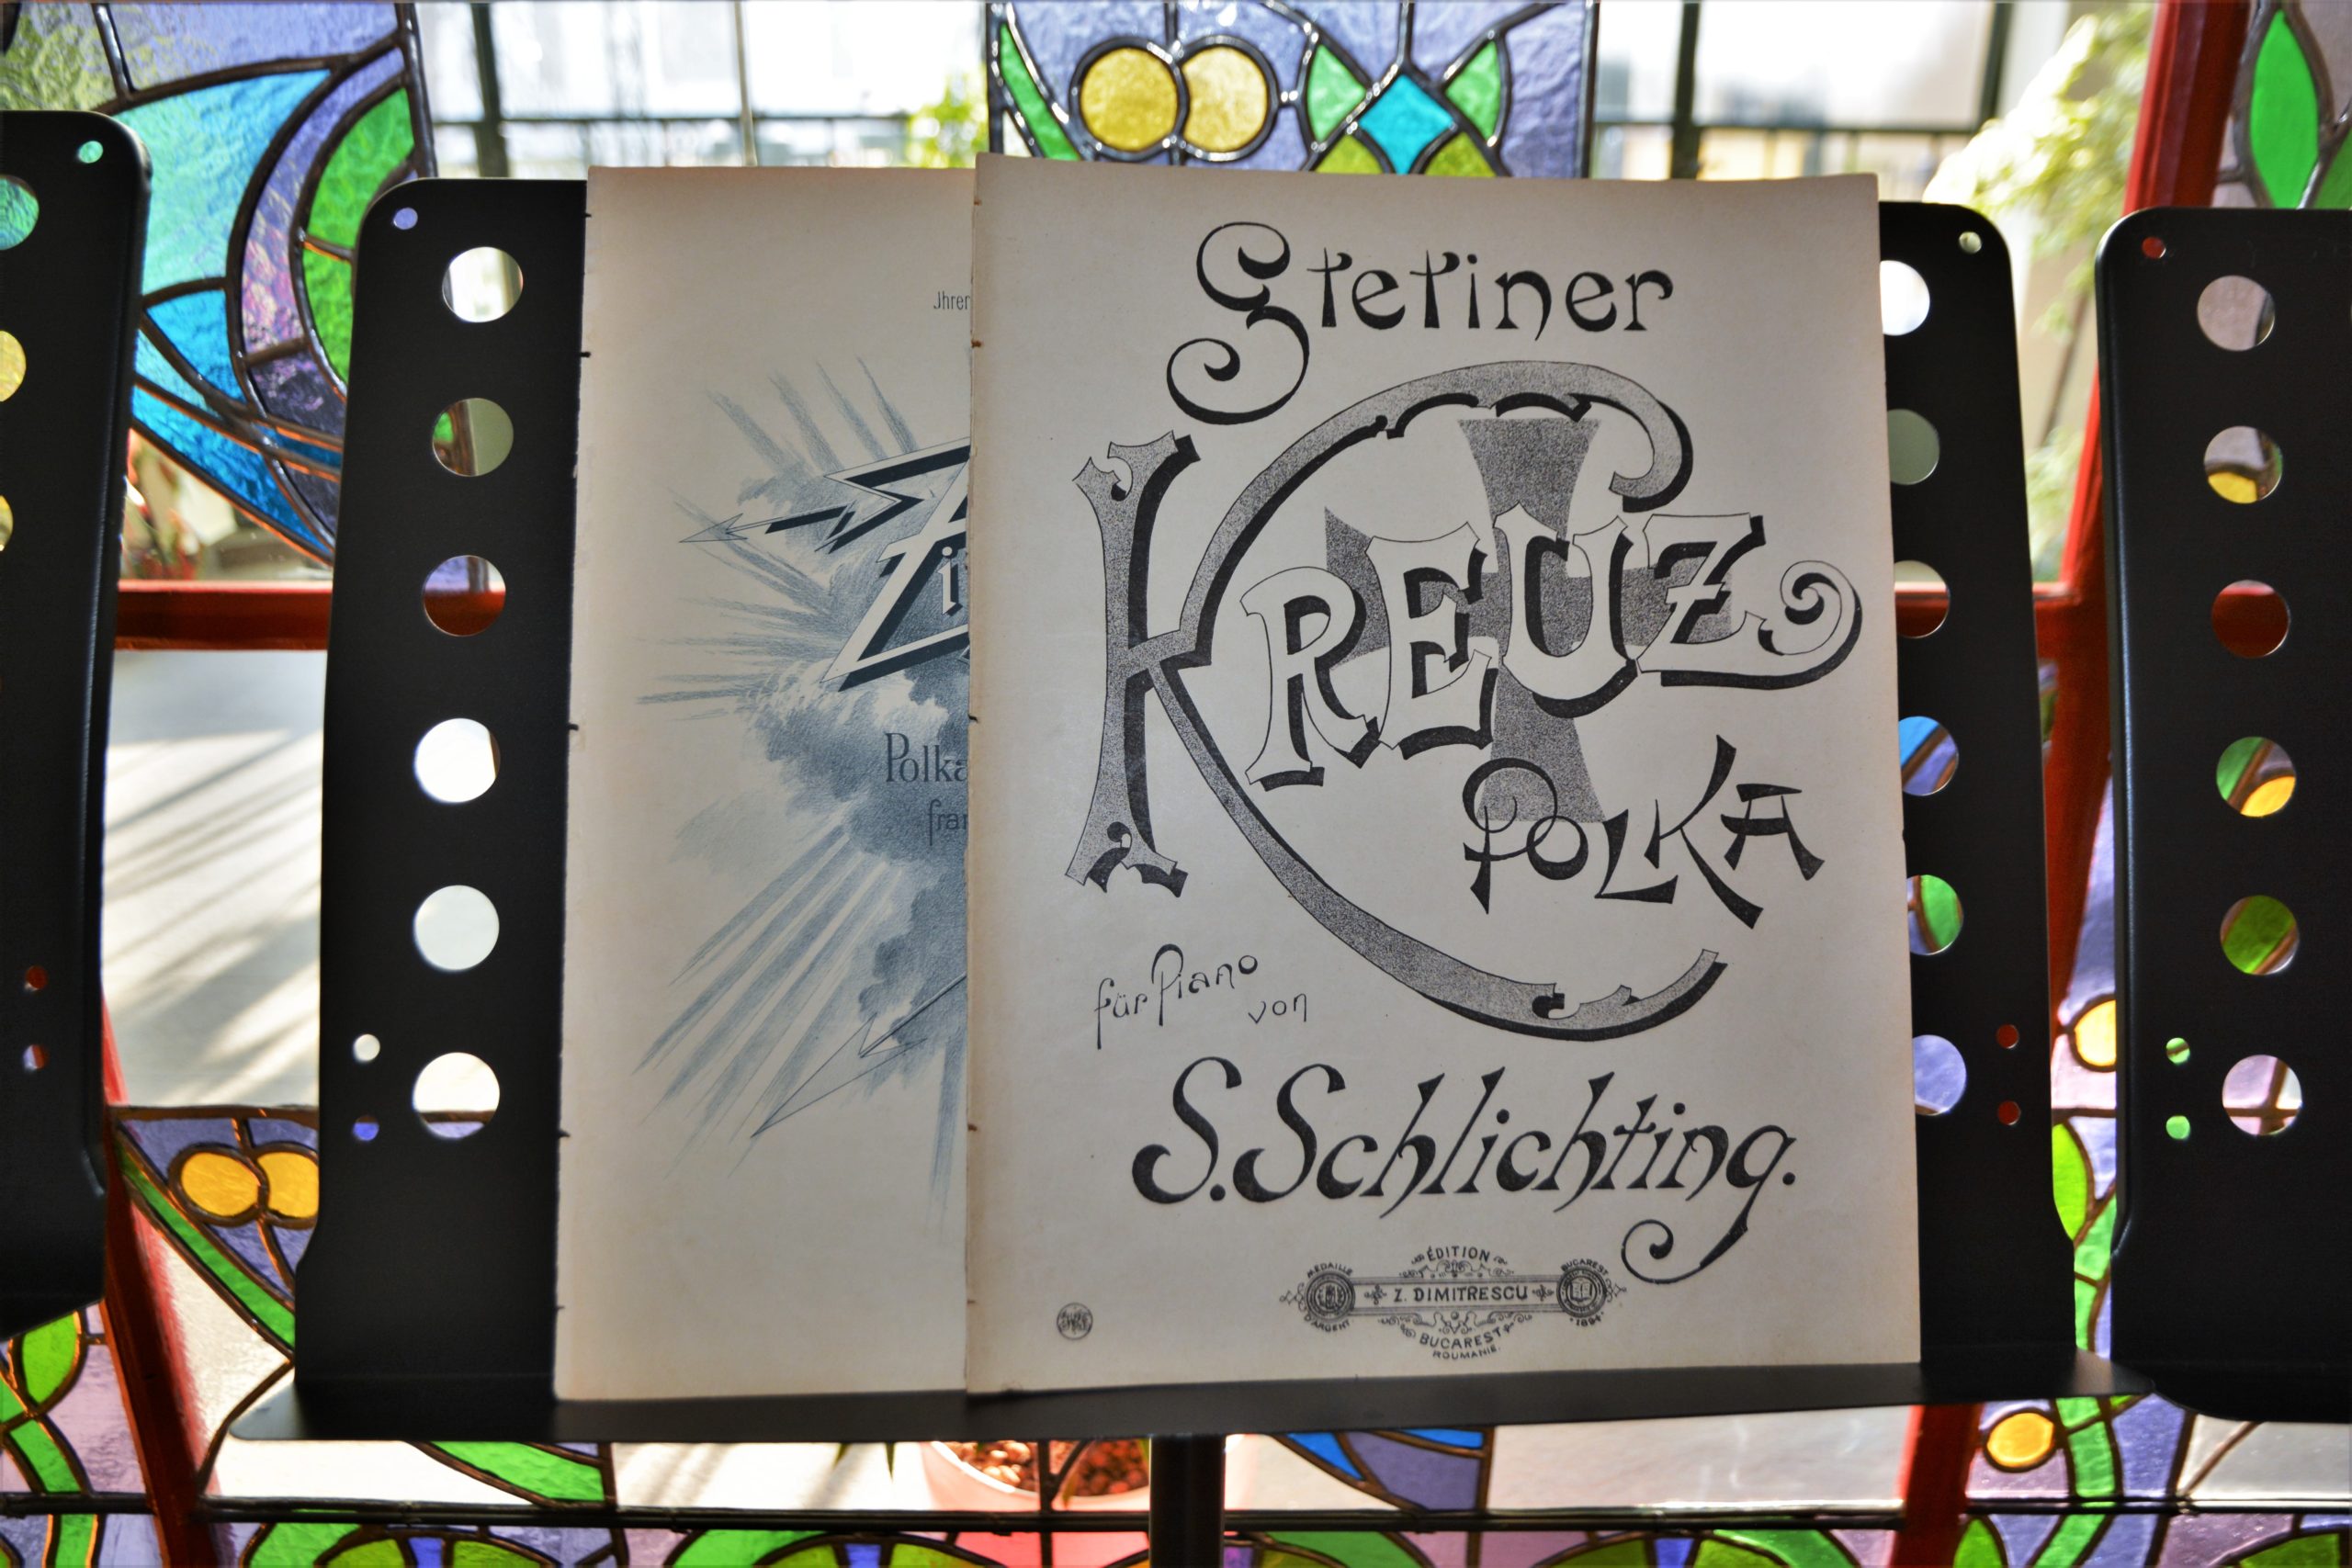 Jhren
Polka
fran
Stetiner
KREUZ
POLKA
für Piano
von
S. Schlichting.
ÉDITION
MÉDAILLE
D'ARGENT
Z. DIMITRESCU
BUCAREST
1894
BUCAREST
ROUMANIE.